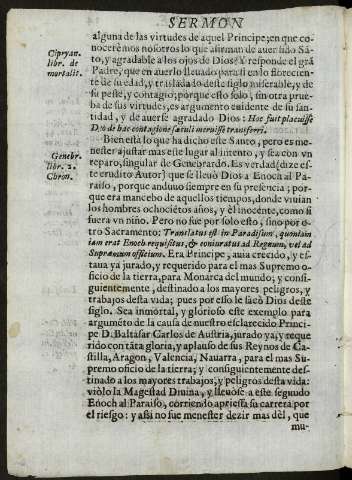 SERMON
alguna de las virtudes de aquel Principe, en que co-
nocerèmos nosotros lo que afirman de auer sido Sã-
to, y agradable a los ojos de Dios? Y responde el grã
Padre, que en auerlo lleuado para sì en lo florecien-
te de su edad, y trasladado deste siglo miserable, y de
su peste, y contagio; porque esto solo, sin otra prue-
ba de sus virtudes, es argumento euidente de su san-
tidad, y de auerse agradado Dios: Hoc fuit placuisse
Deo de hac contagione sæculi meruisse transferri.
Cipryan.
libr. de
mortalit.
Bien està lo que ha dicho este Santo, pero es me-
nester ajustar mas este lugar al intento, y sea con vn
reparo, singular de Genebrardo. Es verdad (dize es-
te erudito Autor) que se lleuò Dios a Enoch al Pa-
raiso, porque anduuo siempre en su presencia; por-
que era mancebo de aquellos tiempos, donde viuian
los hombres ochociẽtos años, y èl inocente, como si
fuera vn niño. Pero no fue por solo esto, sino por o-
tro Sacramento: Translatus est in Paradisum, quoniam
iam erat Enoch requisitus, & coniuratus ad Regnum, vel ad
Supremum officium. Era Principe, auia crecido, y es-
taua ya jurado, y requerido para el mas Supremo o-
ficio de la tierra, para Monarca del mundo; y consi-
guientemente, destinado a los mayores peligros, y
trabajos desta vida; pues por esso le sacò Dios deste
siglo. Sea inmortal, y glorioso este exemplo para
argumẽto de la causa de nuestro esclarecido Princi-
pe D. Baltasar Carlos de Austria, jurado ya, y reque
rido con tãta gloria, y aplauso de sus Reynos de Ca-
stilla, Aragon, Valencia, Nauarra, para el mas Su-
premo oficio de la tierra; y consiguientemente des-
tinado a los mayores trabajos, y peligros desta vida:
viòlo la Magestad Diuina, y lleuòse a este segundo
Enoch al Paraiso, corriendo apriessa su carrera por
el riesgo: y assi no fue menester dezir mas dèl, que
mu-
Genebr.
libr. 2.
Chron.